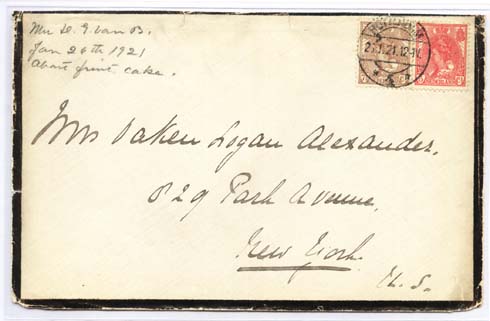 Mrs D. G. van B.
Jan 26th 1921
About fruit cake.
Mrs Oaken Logan Alexander,
829 Park Avenue,
New York.
U. S.